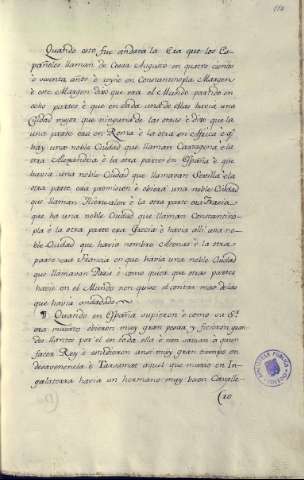 Quando esto fue andava la Era que los Es-
pañoles llaman de Cesar Augusto en quatro cientos
è ovienta años è reynò en Constantinopla Margen
è este Margen dixo que era el Mundo partido en
ocho partes è que en cada una de ellas havia una
Ciudad mayor que ninguna de las otras è dixo que la
una parte era en Roma è la otra en Africa è q.e
hay una noble Ciudad que llaman Cartagena è la
otra Alexandria è la otra parte en España è que
havia una noble Ciudad que llamavan Sevilla è la
otra parte era promision è obiera una noble Ciudad
que llaman Hierusalem è la otra parte era
que ha una noble Ciudad que llaman Constantino-
pla è la otra parte era Grecia è havia alli una no-
ble Ciudad que havia nombre Atenas è la otra
parte era Francia en que havia una noble Ciudad
que llamavan Paris è como quiera que otras partes
havia en el Mundo non quiso èl contar mas de las
que havia
Quando en España supieron è como su S.r
era muerto obieron muy gran pesar y ficieron gran-
des llantos por èl en toda ella è non savian a quien
facer Rey è estubieron ansi muy gran tiempo en
desavenencia è Tarsamat aquel que murio en In-
galaterra havia un hermano muy buen Cavalle-
(ro